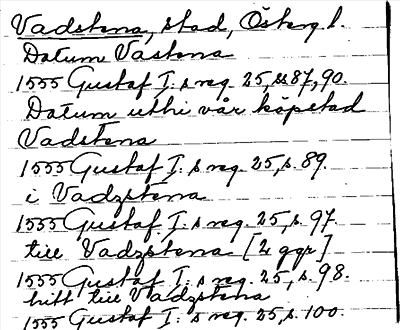 Vadstena, stad, Östergl.
Datum Vastena
1555 Gustaf I:s reg. 25, s. 87, 90.
Datum uthi vår köpstad
Vadstena
1555 Gustaf I:s reg. 25, s. 89.
i Vadzstena
1555 Gustaf I:s reg. 25, s. 97.
till Vadzstena [2 ggr]
1555 Gustaf I:s reg. 25, s. 98.
hitt till Vadzstena
1555 Gustaf I:s reg. 25, s. 100.